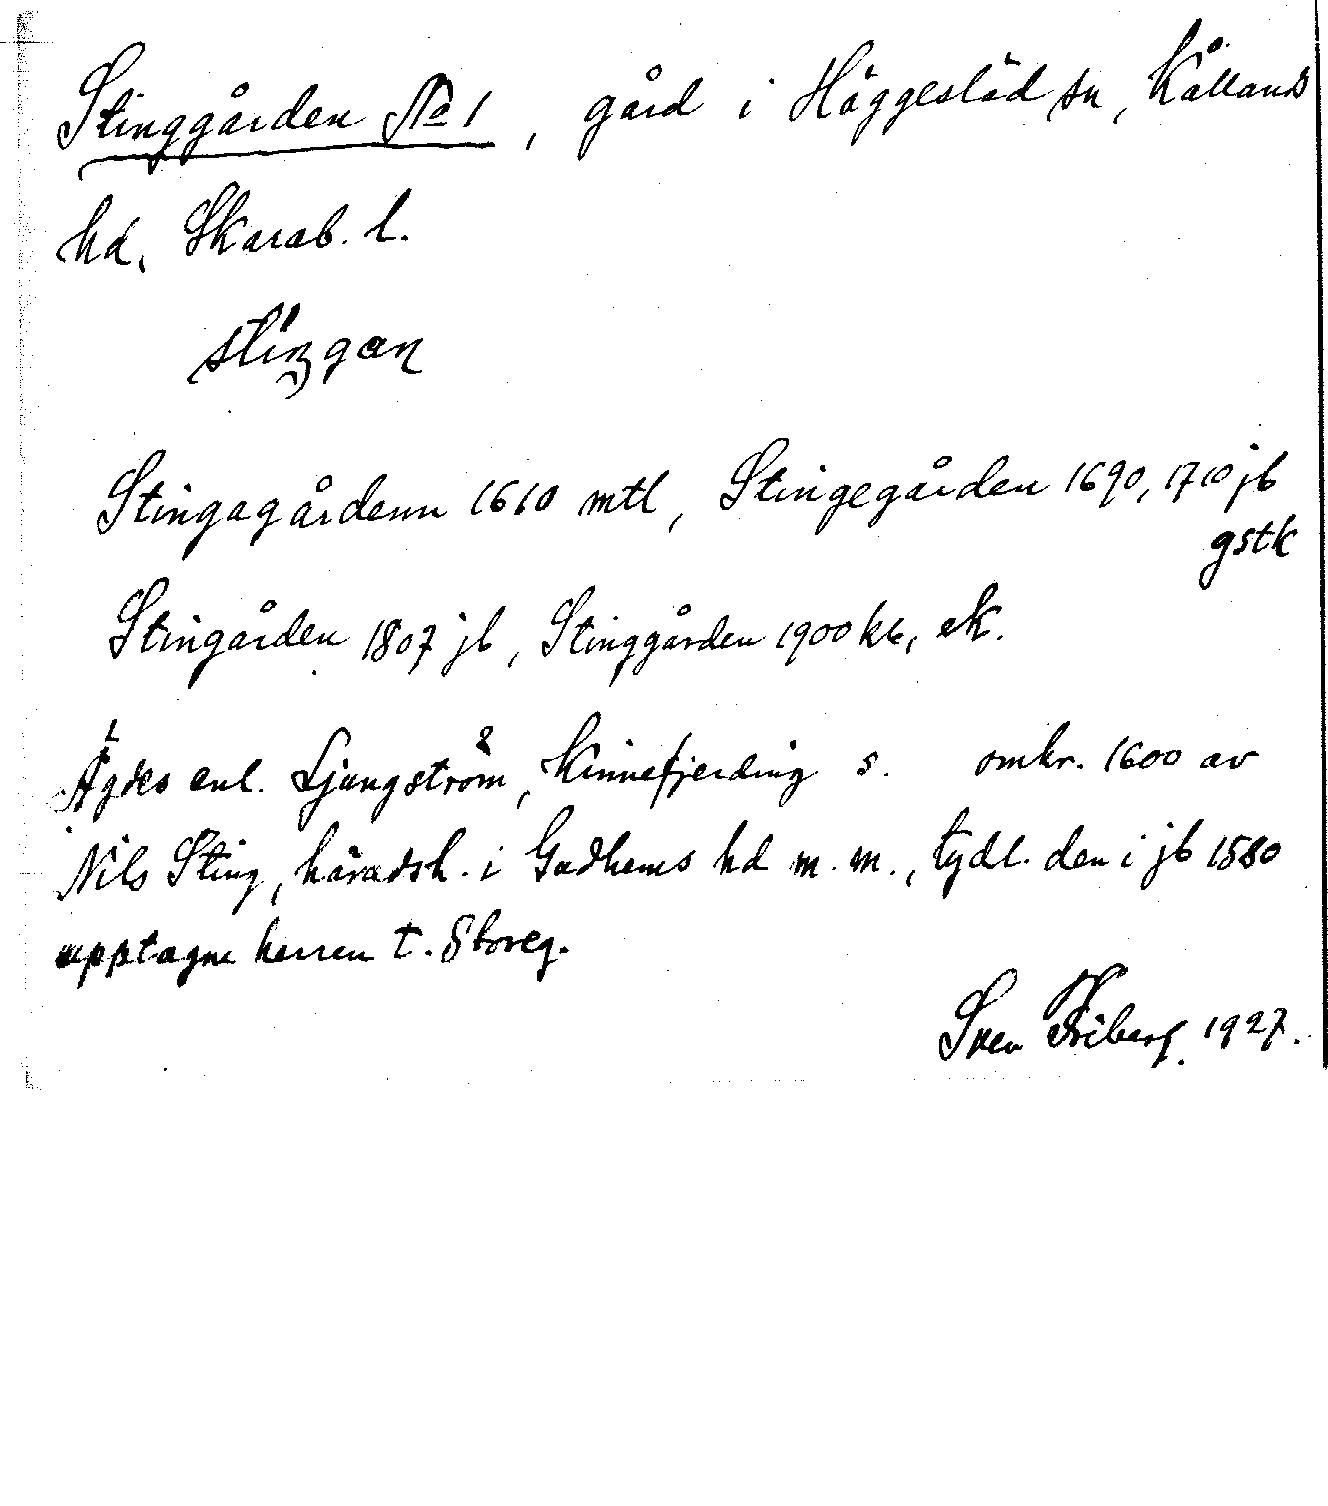 Stinggården No 1, gård i Häggesläd sn, Kållands
hd, Skarab. l.
Stingagårdenn 1610 mtl, Stingegården 1690, 1710 jb
gstk
Stingården 1807 jb, Stinggården 1900 kb, ek.
Ägdes enl. Ljungström, Kinnefjerding s. omkr. 1600 av
Nils Sting, häradsh. i Gudhems hd m. m., tydl. den i jb 1580
upptagne herren t. Storeg.
Sven Friberg. 1927.